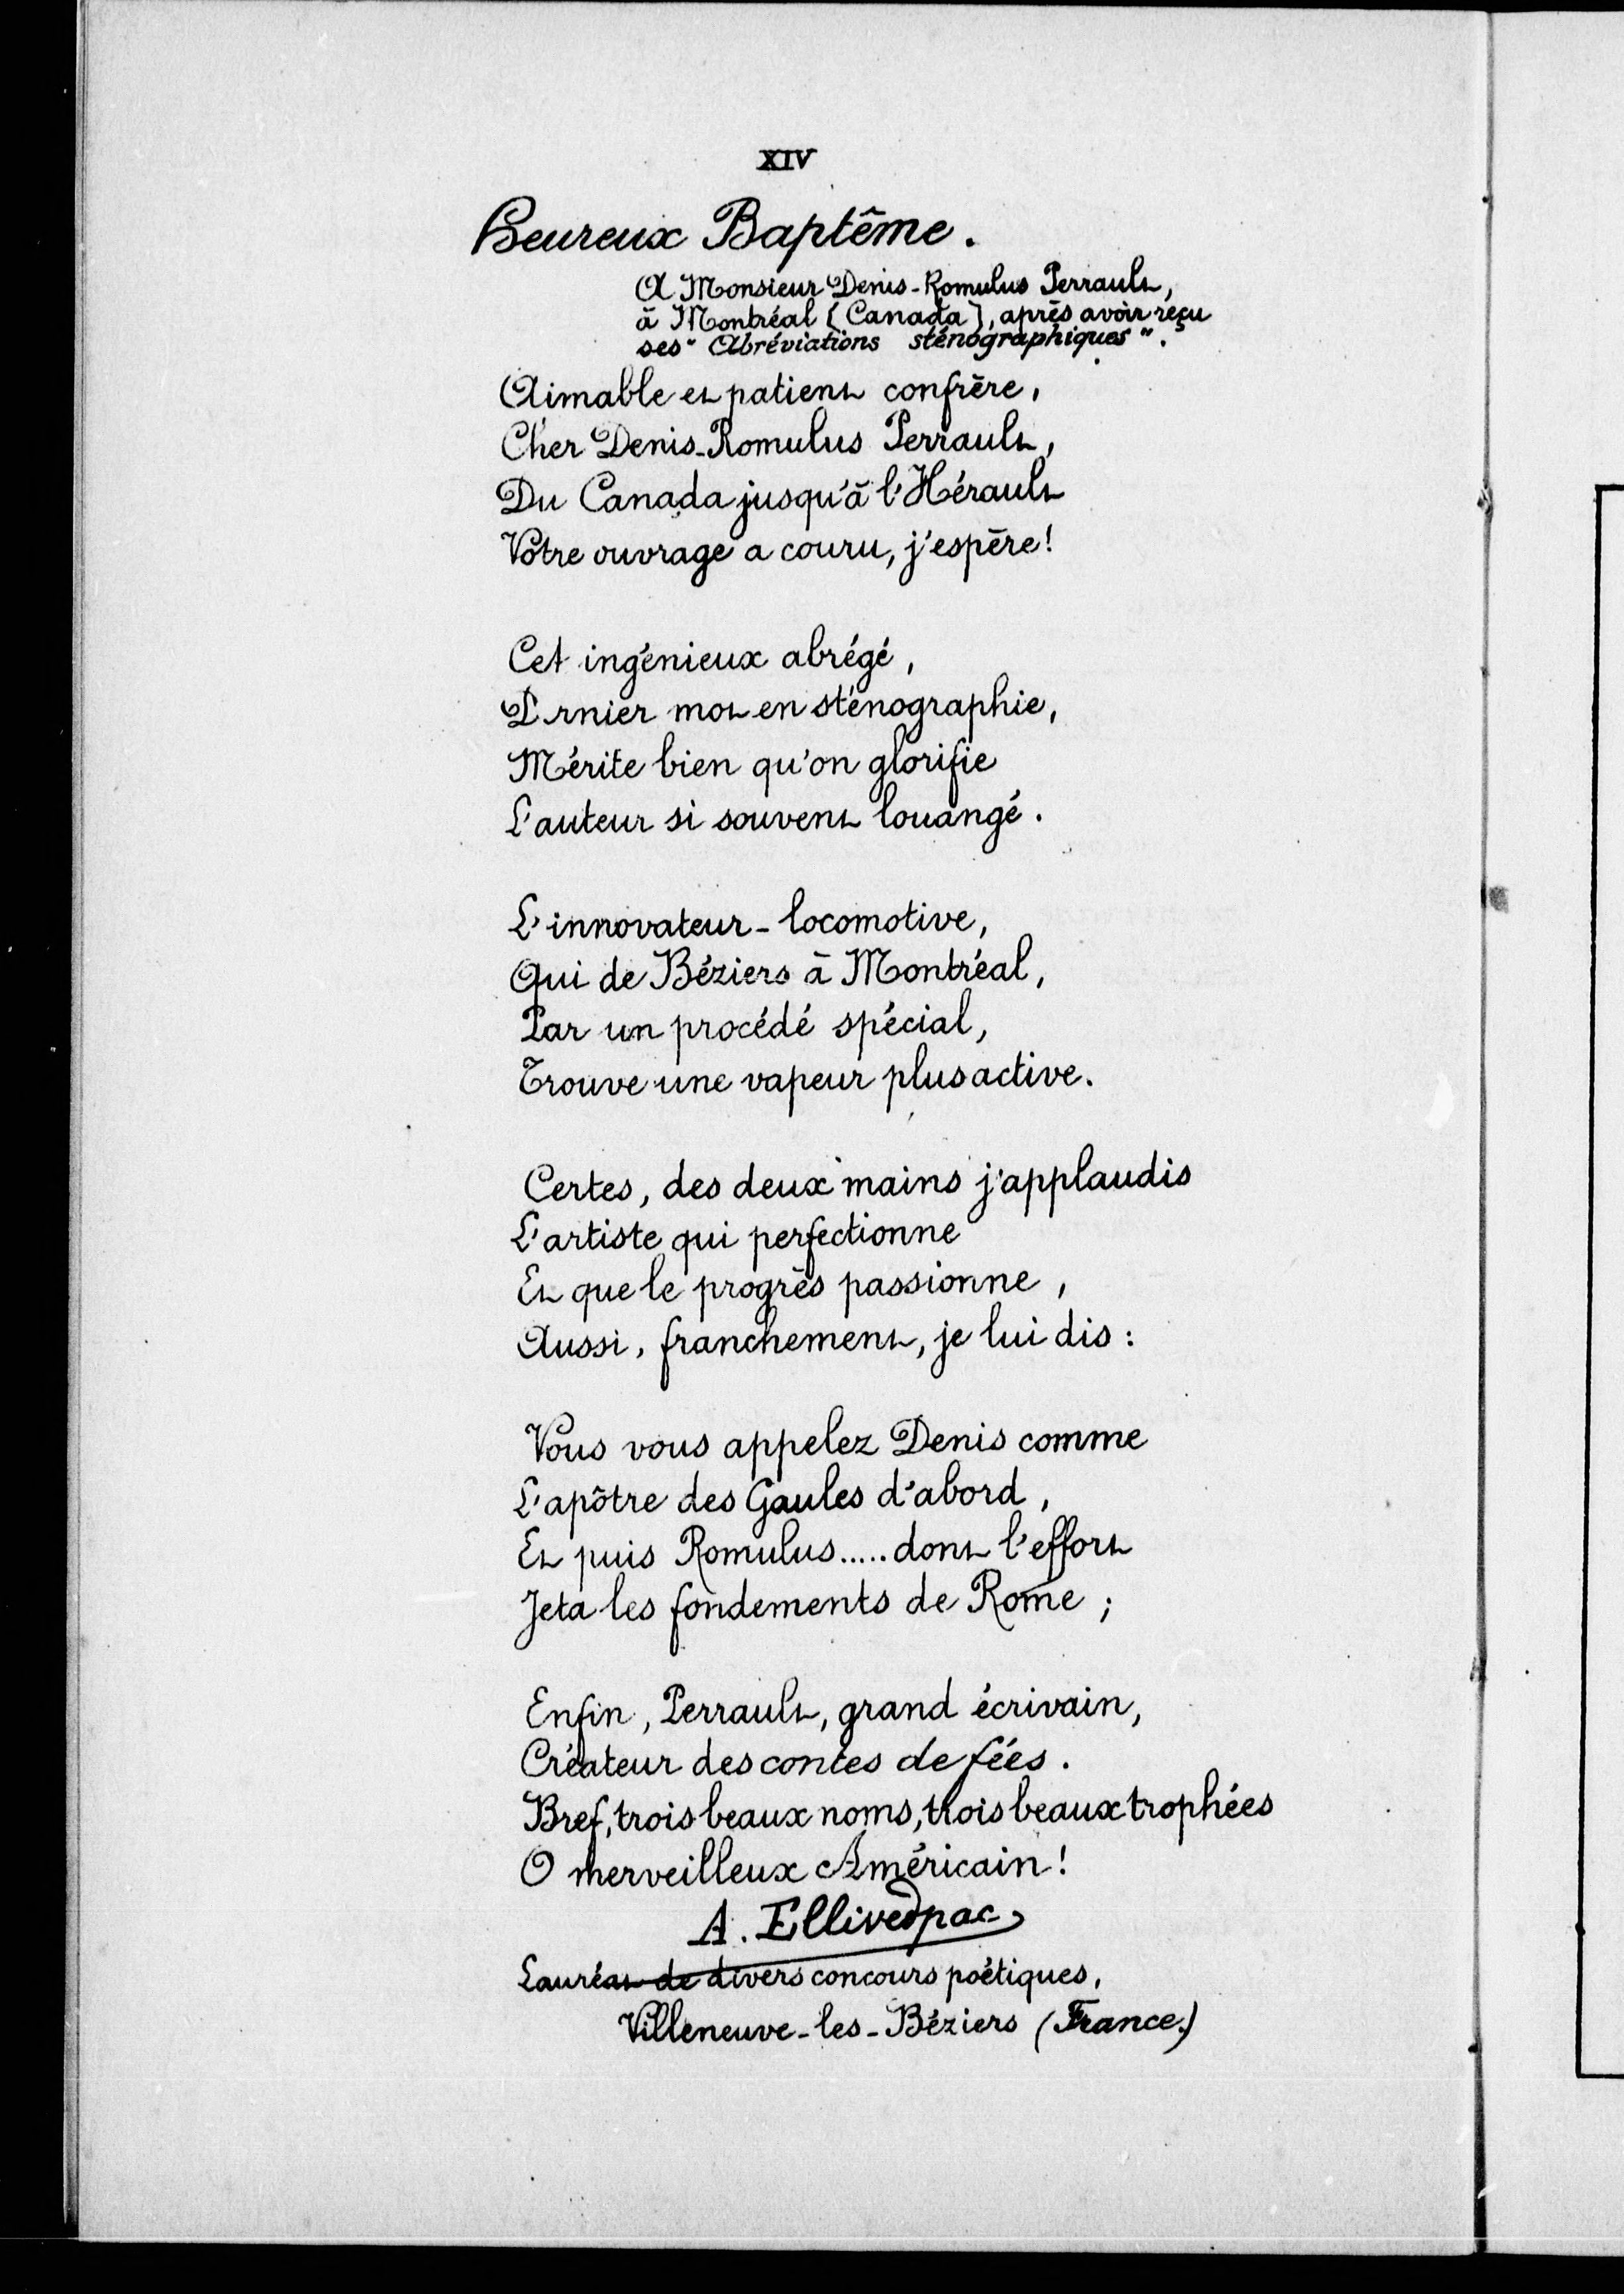 XIV
Heureux Baptême.
A Monsieur Denis-Romulus Perrault,
à Montréal (Canada), après avoir reçu
ses "Abréviations sténographiques".
Aimable et patient confrère,
Cher Denis-Romulus Perrault,
Du Canada jusqu'à l'Hérault
Votre ouvrage a couru, j'espère!
Cet ingénieux abrégé,
D rnier mot en sténographie,
Mérite bien qu'on glorifie
L'auteur si souvent louangé.
L'innovateur-locomotive,
Qui de Béziers à Montréal,
Par un procédé spécial,
Trouve une vapeur plus active.
Certes, des deux mains j'applaudis
L'artiste qui perfectionne
Et que le progrès passionne,
Aussi, franchement, je lui dis:
Vous vous appelez Denis comme
L'apôtre des Gaules d'abord,
Et puis Romulus.....dont l'effort
Jeta les fondements de Rome;
Enfin, Perrault, grand écrivain,
Créateur des contes de fées.
Bref, trois beaux noms, trois beaux trophées
O merveilleux Américain!
A. Ellivedpac
Lauréat de divers concours poétiques,
Villeneuve-les-Béziers (France.)